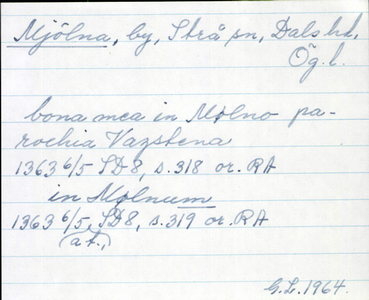 Mjölna, by, Strå sn, Dals hd,
Ög. l.
bona mea in Mølno pa-
rochia Vazstena
1363 6/5 SD8, s. 318 or. RA
in Mølnum
1363 6/5, SD8, s. 319 or. RA
(a.t.,)
G.L. 1964.